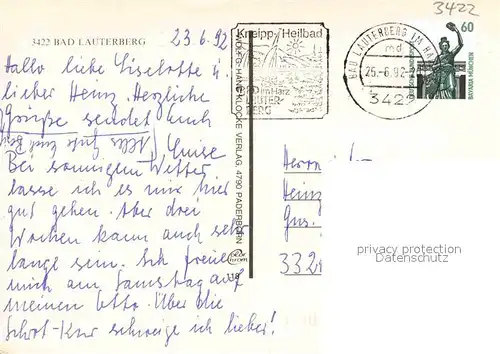 3422
3422 BAD LAUTERBERG
23.6.92
Hallo liebe Liselotte u.
lieber Heinz, Herzliche
Grüße sendet euch
Luise
Alles Gute und
Bei sonnigem Wetter
lasse ich es mir hier
gut gehen. Aber drei
Wochen kann auch sehr
lange sein. Ich freue
mich am Samstag auf
meinen Otto. Über die
Schrot-Kur schweige ich lieber!
Kneipp Heilbad
BAD im Harz
LAUTER-
BERG
BAD LAUTERBERG IM HARZ
md
25.-6.92-2
3422
60
BAYARIA MÜNCHEN
HANS KLOCKE VERLAG, 4790 PADERBORN
Herrn
Heinz
Gus
332
privacy protection
Datenschutz